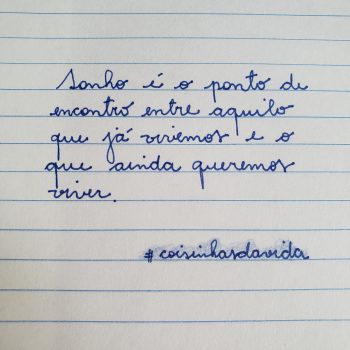 Sonho é o ponto de
encontro entre aquilo
que já vivemos e o
que ainda queremos
viver.
#coisinhasdavida